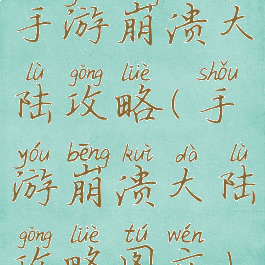 手游崩溃大
lù gōng lüè shǒu
陆攻略(手
yóu bēng kuì dà lù
游崩溃大陆
gōng lüè tú wén
攻略图文)